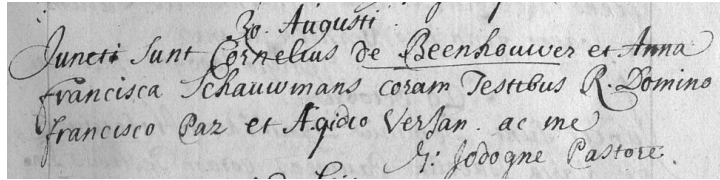 30. Augusti.
Juncti sunt Cornelius de Beenhouwer et Anna
francisca Schauwmans coram Testibus R. Domino
francisco Paz et Agidio Versan. ac me
Jodogne Pastore.